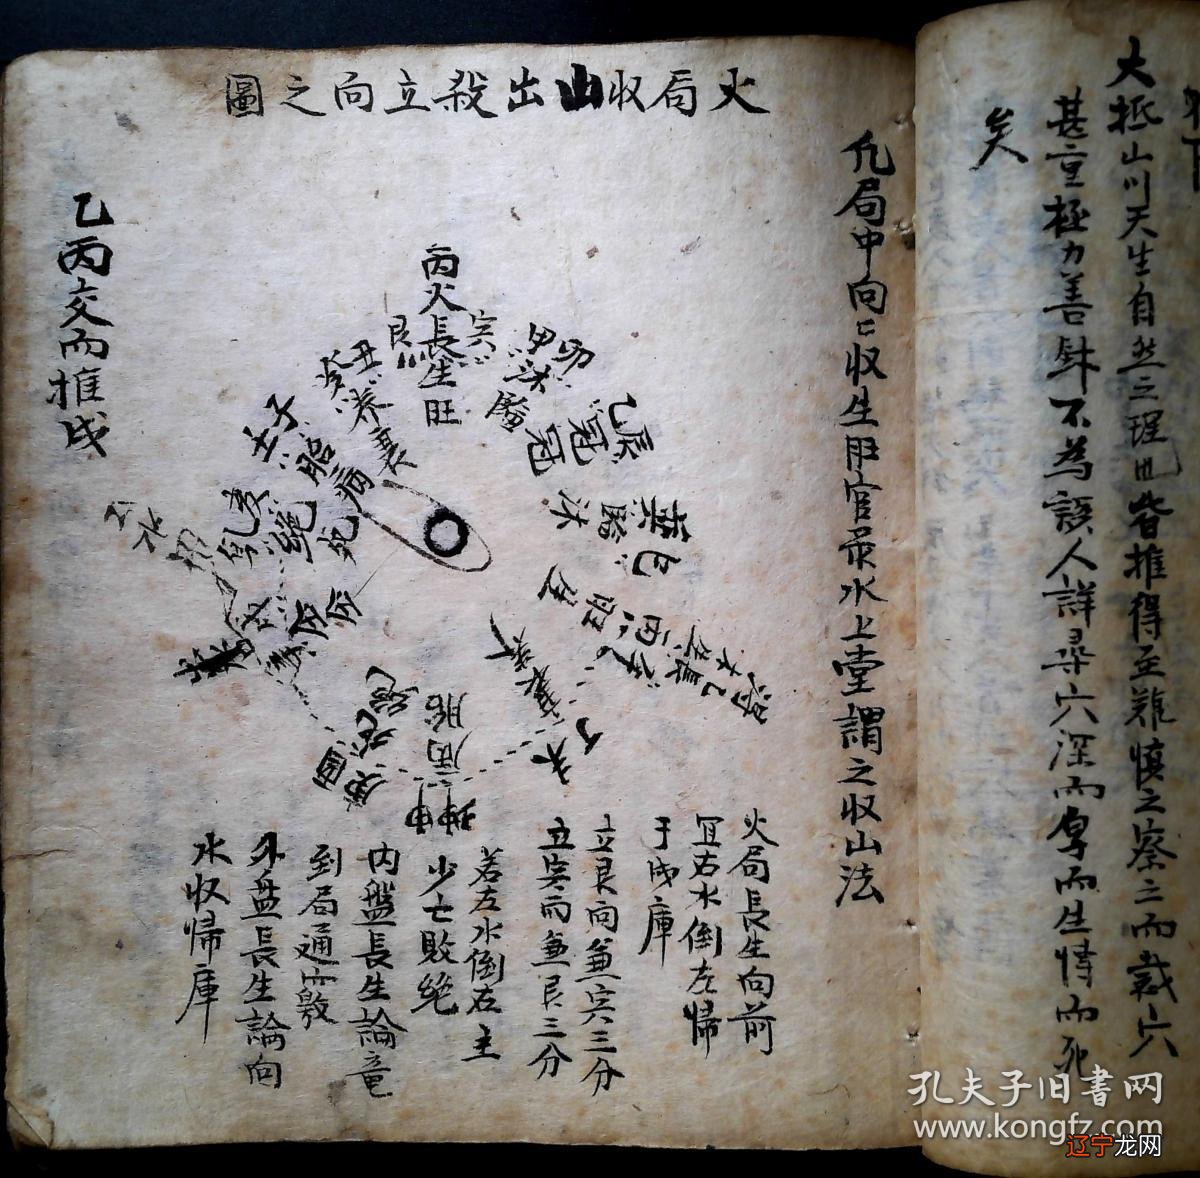 大抵山川天生自然之理也皆推得至難慎之察之而裁穴
甚重極力善斟不為誤人詳尋穴深而厚而生情而死
矣
火局收山出殺立向之圖
凢局中向〻収生旺官录水上堂謂之収山法
丙火長生旺
艮
寅
甲
卯
沐
乙辰
冠
冠
丑
癸
養
衰
壬子
胎
病
亥
絕
死
乙丙交而推戌
巳
丙
坤申
病
胎
庚酉
死
絕
火局長生向前
宜右水倒左歸
于戌庫
立艮向兼寅三分
立寅而兼艮三分
若左水倒右主
少亡敗絕
内盤長生論竜
到局通而竅
外盤長生論向
水収歸庫
孔夫子旧书网
www.kongfz.com
辽宁龙网